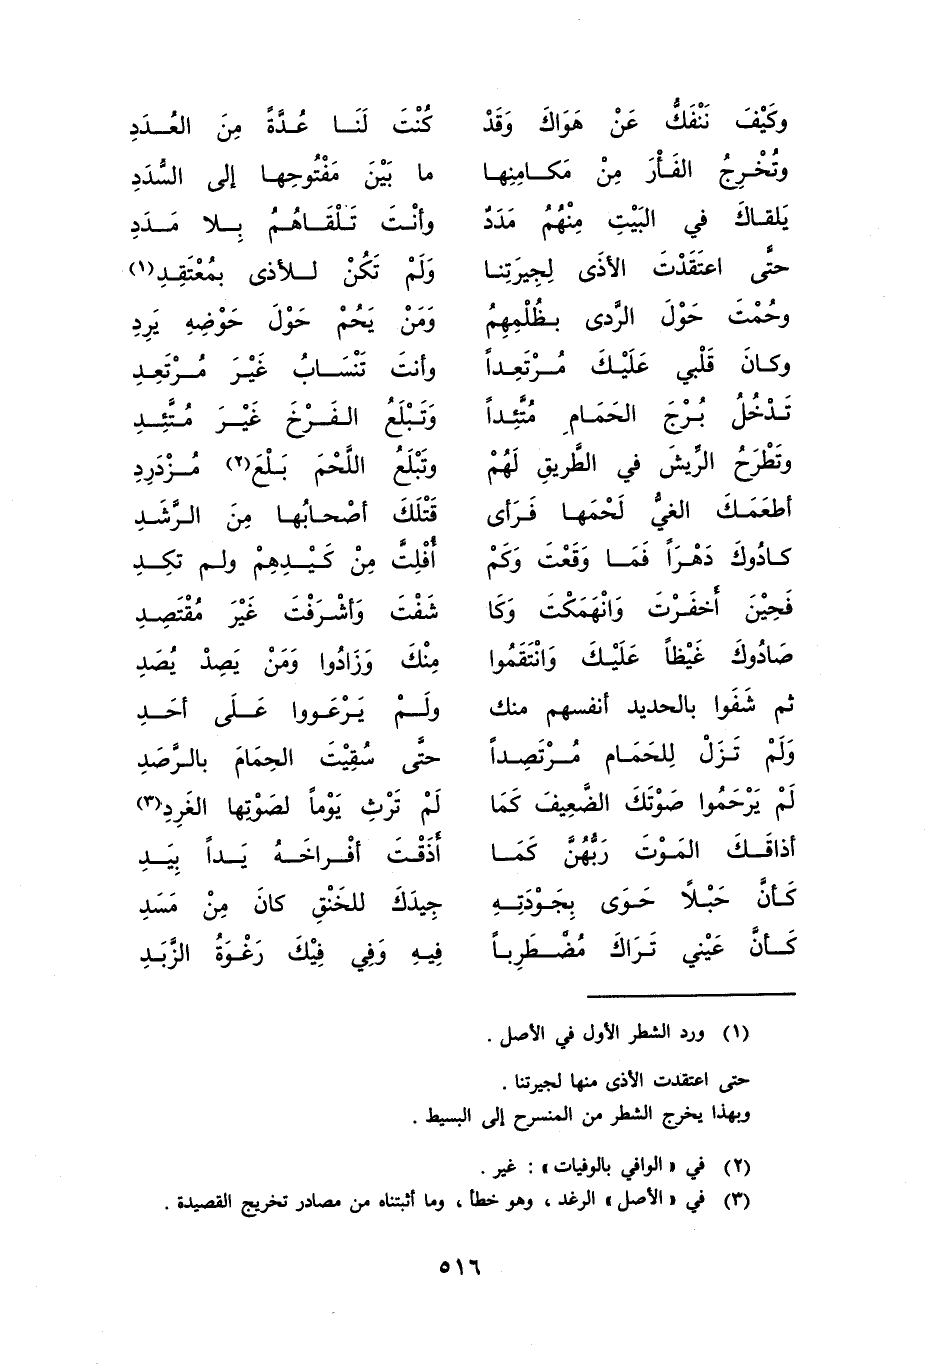 وكَيْفَ نَنْفَكُّ عَنْ هَوَاكَ وَقَدْ كُنْتَ لَنَا عُدَّةً مِنَ العُدَدِ
وتُخْرِجُ الفَأْرَ مِنْ مَكَامِنِها ما بَيْنَ مَفْتُوحِها إلى السُّدَدِ
يَلقاكَ في البَيْتِ مِنْهُمُ مَدَدٌ وأنْتَ تَلْقَاهُمُ بِلا مَدَدِ
حتَّى اعتَقَدْتَ الأذَى لِجيرَتِنا وَلَمْ تَكُنْ للأذى بمُعْتَقِدِ(١)
وحُمْتَ حَوْلَ الرَّدى بظُلْمِهِمُ وَمَنْ يَحُمْ حَوْلَ حَوْضِهِ يَرِدِ
وكانَ قَلْبي عَلَيْكَ مُرْتَعِداً وأنتَ تَنْسَابُ غَيْرَ مُرْتَعِدِ
تَدْخُلُ بُرْجَ الحَمَامِ مُتَّئِداً وَتَبْلَعُ الفَرْخَ غَيْرَ مُتَّئِدِ
وتَطْرَحُ الرِّيشَ في الطَّريقِ لَهُمْ وتَبْلَعُ اللَّحْمَ بَلْعَ(٢) مُزْدَرِدِ
أطعَمَكَ الغيُّ لَحْمَها فَرَأى قَتْلَكَ أصْحابُها مِنَ الرَّشَدِ
كادُوكَ دَهْراً فَمَا وَقَعْتَ وَكَمْ أُفْلِتَّ مِنْ كَيْدِهِمْ ولم تكِدِ
فَحِيْنَ أخفَرْتَ وَانْهَمَكْتَ وَكَا شَفْتَ وَأَشْرَفْتَ غَيْرَ مُقْتَصِدِ
صَادُوكَ غَيْظاً عَلَيْكَ وَانْتَقَمُوا مِنْكَ وَزَادُوا وَمَنْ يَصِدْ يُصَدِ
ثم شَفَوا بالحديد أنفسهم منك ولَمْ يَرْعَووا عَلَى أحَدِ
وَلَمْ تَزَلْ لِلحَمَامِ مُرْتَصِداً حتَّى سُقِيْتَ الحِمَامَ بالرَّصَدِ
لَمْ يَرْحَمُوا صَوْتَكَ الضَّعِيفَ كَمَا لَمْ تَرْثِ يَوْماً لصَوْتِها الغَرِدِ(٣)
أذاقَكَ المَوْتَ رَبُّهُنَّ كَمَا أَذَقْتَ أفْرَاخَهُ يَداً بِيَدِ
كَأنَّ حَبْلاً حَوَى بِجَوْدَتِهِ جِيدَكَ للخَنْقِ كانَ مِنْ مَسَدِ
كَأنَّ عَيْني تَرَاكَ مُضْطَرِباً فِيهِ وَفِي فِيْكَ رَغْوَةُ الزَّبَدِ
(١) ورد الشطر الأول في الأصل .
حتى اعتقدت الأذى منها لجيرتنا .
وبهذا يخرج الشطر من المنسرح إلى البسيط .
(٢) في « الوافي بالوفيات » : غير .
(٣) في « الأصل » الرغد ، وهو خطأ ، وما أثبتناه من مصادر تخريج القصيدة .
٥١٦